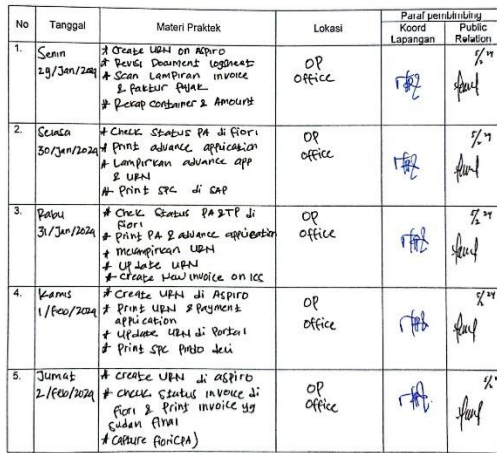 No Tanggal Materi Praktek Lokasi Paraf pembimbing
Koord Lapangan Public Relation
1. Senin 29/Jan/2024
# Create URN on Aspiro
# Revisi Document logsheet
# Scan Lampiran invoice
& Faktur Pajak
# Rekap container & Amount
OP
Office
2. Selasa 30/Jan/2024
# Check Status PA di fiori
# Print advance application
# Lampirkan advance app
& URN
# Print SPC di SAP
OP
Office
3. Rabu 31/Jan/2024
# Chek Status PA & TP di
Fiori
# Print PA & advance application
# melampirkan URN
# Update URN
# Create New invoice on ICS
OP
Office
4. Kamis 1/Feb/2024
# Create URN di Aspiro
# Print URN & Payment
application
# Update URN di Portal
# Print SPC Pindo deli
OP
Office
5. Jumat 2/Feb/2024
# Create URN di aspiro
# Check Status invoice di
fiori & Print invoice yg
sudah final
# Capture fiori (PA)
OP
Office